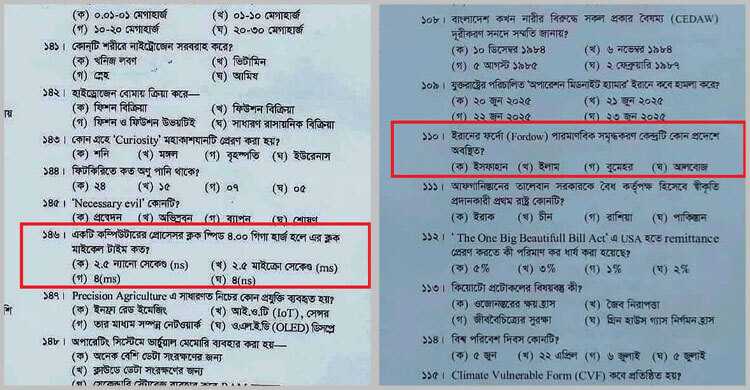 (ক) ০.০১-০১ মেগাহার্জ (খ) ০১-১০ মেগাহার্জ
(গ) ১০-২০ মেগাহার্জ (ঘ) ২০-৩০ মেগাহার্জ
১৪১। কোনটি শরীরে নাইট্রোজেন সরবরাহ করে?
(ক) খনিজ লবণ (খ) ভিটামিন
(গ) স্নেহ (ঘ) আমিষ
১৪২। হাইড্রোজেন বোমায় ক্রিয়া করে—
(ক) ফিশন বিক্রিয়া (খ) ফিউশন বিক্রিয়া
(গ) ফিশন ও ফিউশন উভয়টিই (ঘ) সাধারণ রাসায়নিক বিক্রিয়া
১৪৩। কোন গ্রহে 'Curiosity' মহাকাশযানটি প্রেরণ করা হয়?
(ক) শনি (খ) মঙ্গল (গ) বৃহস্পতি (ঘ) ইউরেনাস
১৪৪। ফিটকিরিতে কত অণু পানি থাকে?
(ক) ২৪ (খ) ১৫ (গ) ০৭ (ঘ) ০৫
১৪৫। 'Necessary evil' কোনটি?
(ক) প্রস্বেদন (খ) অভিস্রবন (গ) ব্যাপন (ঘ) শোষণ
১৪৬। একটি কম্পিউটারের প্রোসেসর ক্লক স্পিড ৪.০০ গিগা হার্জ হলে এর ক্লক
মাইকেল টাইম কত?
(ক) ২.৫ ন্যানো সেকেণ্ড (ns) (খ) ২.৫ মাইক্রো সেকেণ্ড (ms)
(গ) ৪(ms) (ঘ) ৪(ns)
১৪৭। Precision Agriculture এ সাধারণত নিচের কোন প্রযুক্তি ব্যবহৃত হয়?
(ক) ইনফ্রা রেড ইমেজিং (খ) আই.ও.টি (IoT), সেন্সর
(গ) তার মাধ্যম সম্পন্ন নেটওয়ার্ক (ঘ) ও.এল.ই.ডি (OLED) ডিসপ্লে
১৪৮। অপারেটিং সিস্টেমে ভার্চুয়াল মেমোরি ব্যবহার করা হয়—
(ক) অনেক বেশি ডেটা সংরক্ষণের জন্য
(খ) ক্লাউডে ডেটা সংরক্ষণের জন্য
(গ) সেকেন্ডারি স্টোরেজ ব্যবহার করে
১০৮। বাংলাদেশ কখন নারীর বিরুদ্ধে সকল প্রকার বৈষম্য (CEDAW)
দূরীকরণ সনদে সম্মতি জানায়?
(ক) ১০ ডিসেম্বর ১৯৮৪ (খ) ৬ নভেম্বর ১৯৮৪
(গ) ৫ আগস্ট ১৯৮৫ (ঘ) ২ ফেব্রুয়ারি ১৯৮৭
১০৯। যুক্তরাষ্ট্রের পরিচালিত 'অপারেশন মিডনাইট হ্যামার' ইরানে কবে হামলা করে?
(ক) ২০ জুন ২০২৫ (খ) ২১ জুন ২০২৫
(গ) ২২ জুন ২০২৫ (ঘ) ২৩ জুন ২০২৫
১১০। ইরানের ফর্দো (Fordow) পারমাণবিক সমৃদ্ধকরণ কেন্দ্রটি কোন প্রদেশে
অবস্থিত?
(ক) ইসফাহান (খ) ইলাম (গ) বুমেহর (ঘ) আলবোজ
১১১। আফগানিস্তানের তালেবান সরকারকে বৈধ কর্তৃপক্ষ হিসেবে স্বীকৃতি
প্রদানকারী প্রথম রাষ্ট্র কোনটি?
(ক) ইরাক (খ) চীন (গ) রাশিয়া (ঘ) পাকিস্তান
১১২। 'The One Big Beautifull Bill Act' এ USA হতে remittance
প্রেরণ করতে কী পরিমাণ কর ধার্য করা হয়েছে?
(ক) ৫% (খ) ৩% (গ) ১% (ঘ) ২%
১১৩। কিয়োটো প্রটোকলের বিষয়বস্তু কী?
(ক) ওজোনস্তরের ক্ষয় হ্রাস (খ) জৈব নিরাপত্তা
(গ) জীববৈচিত্র্যের সুরক্ষা (ঘ) গ্রিন হাউস গ্যাস নির্গমন হ্রাস
১১৪। বিশ্ব পরিবেশ দিবস কোনটি?
(ক) ৫ জুন (খ) ২২ এপ্রিল (গ) ৬ জুলাই (ঘ) ৫ জুলাই
১১৫। Climate Vulnerable Form (CVF) কবে প্রতিষ্ঠিত হয়?